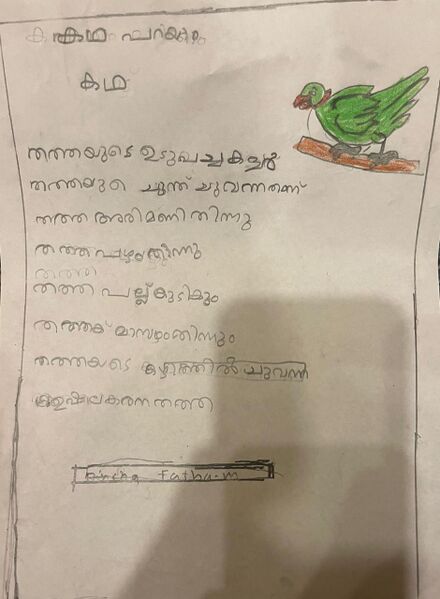 കഥ പറയാം
കഥ
തത്തയുടെ ഉടുപ്പ് പച്ച കളർ
തത്തയുടെ ചുണ്ട് ചുവന്നതണ്
തത്ത അരിമണി തിന്നു
തത്ത പഴം തിന്നു
തത്ത
തത്ത പല്ല് കുടികും
തത്തക് മാമ്പഴം തിന്നും
തത്തയടെ കഴുത്തിൽ ചുവന്ന
തത്ത
Fatha.m